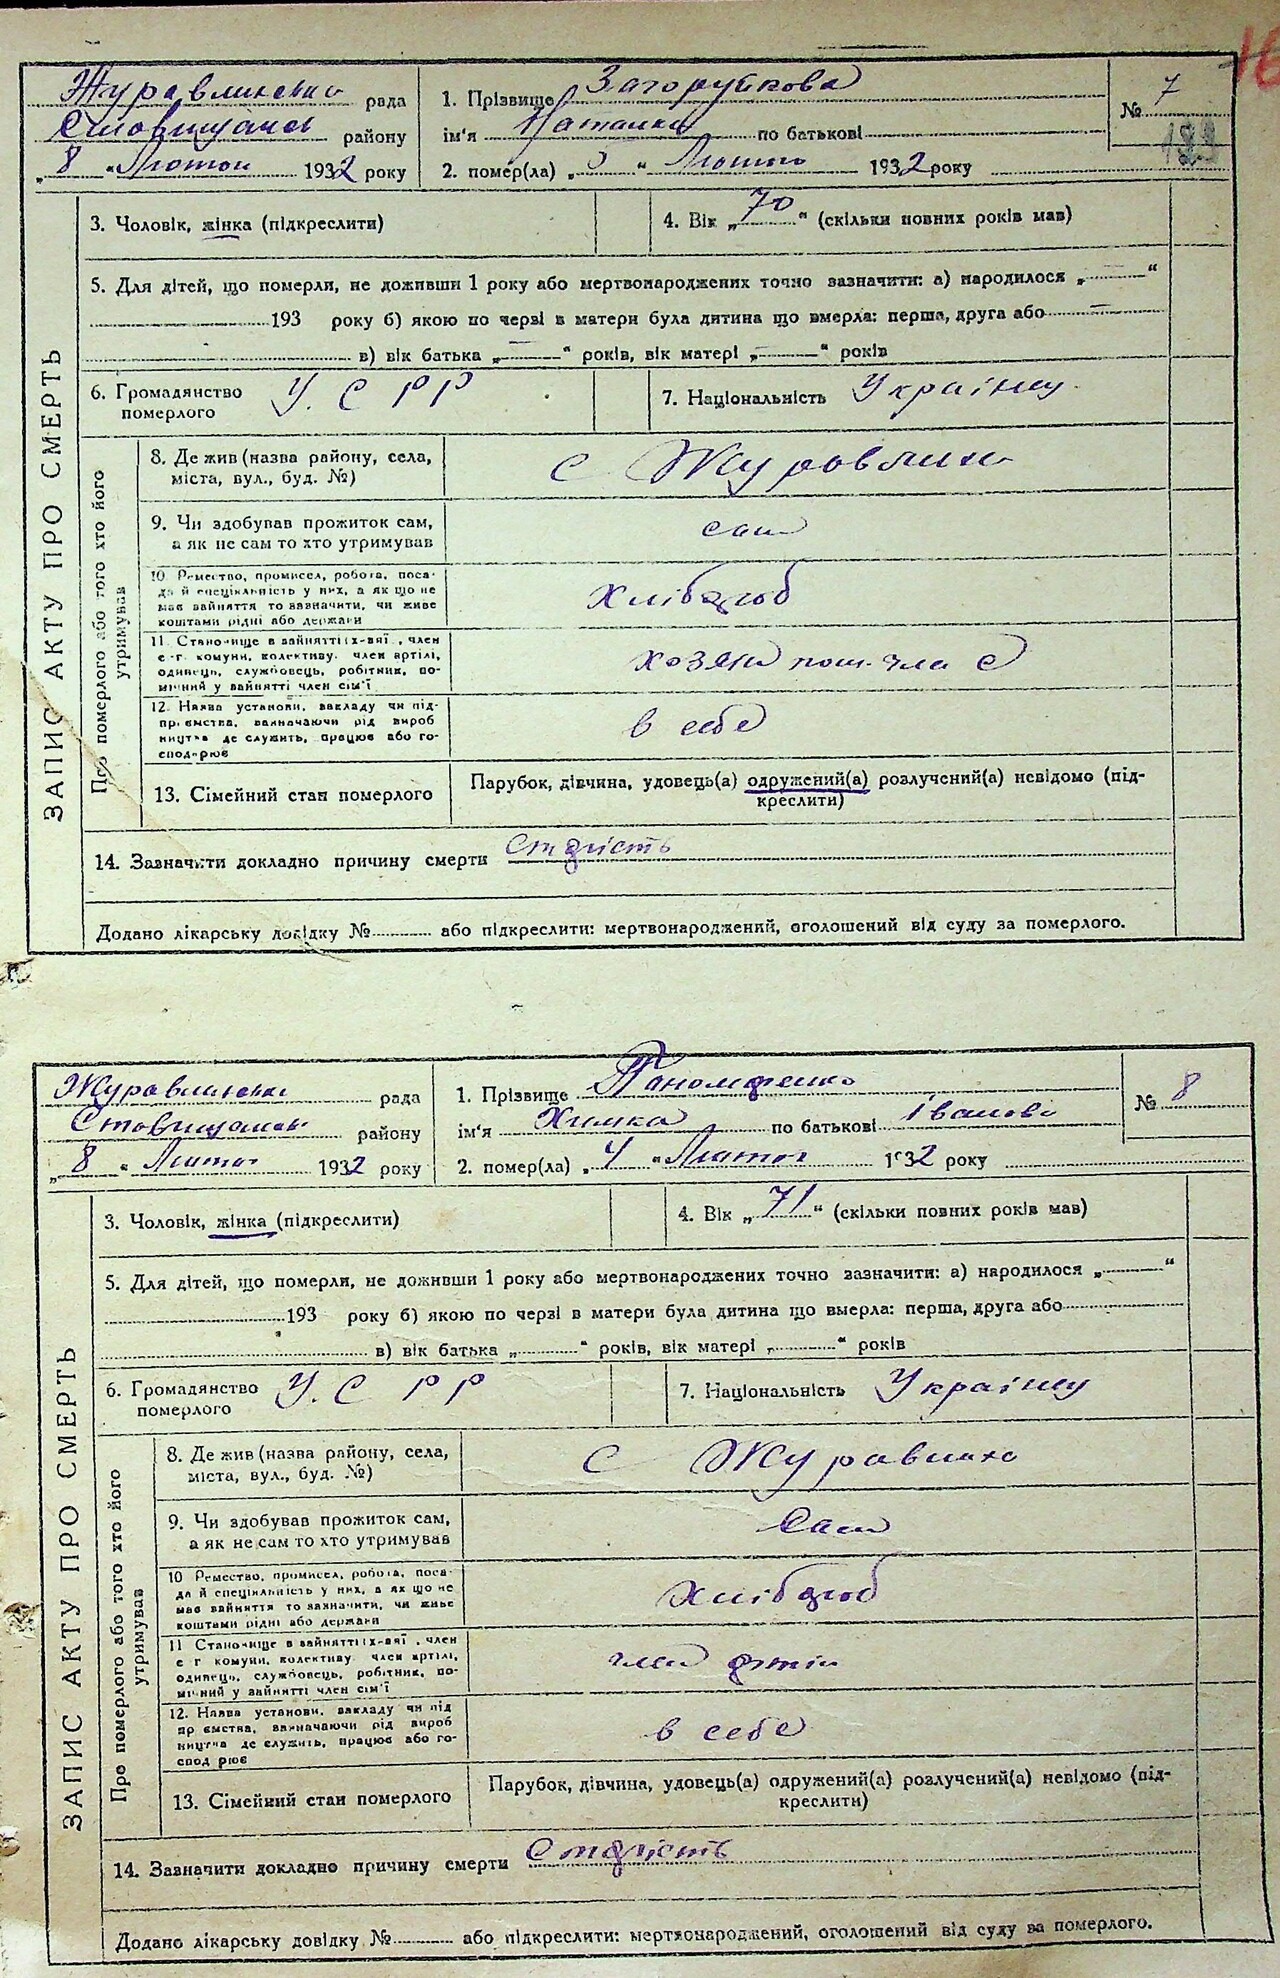 16
Журавлинська рада
Ставищан. району
„ 8 “ Лютого 1932 року
1. Прізвище Загоруйкова
ім'я Наталка по батькові
2. помер(ла) „ 5 “ Лютого 1932 року
№ 7
ЗАПИС АКТУ ПРО СМЕРТЬ
3. Чоловік, жінка (підкреслити)
4. Вік „ 70 “ (скільки повних років мав)
5. Для дітей, що померли, не доживши 1 року або мертвонароджених точно зазначити: а) народилося „ — “
193 року б) якою по черзі в матери була дитина що вмерла: перша, друга або —
в) вік батька „ — “ років, вік матері „ — “ років
6. Громадянство
померлого
У. С Р Р
7. Національність Украінц
Про померлого або того хто його
утримував
8. Де жив (назва району, села,
міста, вул., буд. №)
с Журавлиха
9. Чи здобував прожиток сам,
а як не сам то хто утримував
сам
10. Ремество, промисел, робота, поса-
да й спеціяльність у них, а як що не
має зайняття то зазначити, чи живе
коштами рідні або держави
Хлібороб
11. Становище в зайнятті (х-вяї, член
с-г. комуни, колективу, член артілі,
одинець, службовець, робітник, по-
мічний у зайнятті член сім'ї
хозяін
12. Назва установи, закладу чи під-
приємства, зазначаючи рід вироб
ництва де служить, працює або го-
сподарює
в себе
13. Сімейний стан померлого
Парубок, дівчина, удовець(а) одружений(а) розлучений(а) невідомо (під-
креслити)
14. Зазначити докладно причину смерти Старість
Додано лікарську довідку № або підкреслити: мертвонароджений, оголошений від суду за померлого.
Журавлинська рада
Ставищан. району
„ 8 “ Лютого 1932 року
1. Прізвище Паномаренко
ім'я Химка по батькові Іванова
2. помер(ла) „ 4 “ Лютого 1932 року
№ 8
ЗАПИС АКТУ ПРО СМЕРТЬ
3. Чоловік, жінка (підкреслити)
4. Вік „ 71 “ (скільки повних років мав)
5. Для дітей, що померли, не доживши 1 року або мертвонароджених точно зазначити: а) народилося „ “
193 року б) якою по черзі в матери була дитина що вмерла: перша, друга або
в) вік батька „ “ років, вік матері „ “ років
6. Громадянство
померлого
У. С Р Р
7. Національність Украінц
Про померлого або того хто його
утримував
8. Де жив (назва району, села,
міста, вул., буд. №)
с Журавлиха
9. Чи здобував прожиток сам,
а як не сам то хто утримував
Сам
10 Ремество, промисел, робота, поса-
да й спеціяльність у них, а як що не
має зайняття то зазначити, чи живе
коштами рідні або держави
Хлібороб
11 Становище в зайнятті (х-вяї, член
с г комуни, колективу член артілі,
одинець, службовець, робітник, по-
мічний у зайнятті член сім'ї
член артіл
12. Назва установи, закладу чи під
приємства, зазначаючи рід вироб
ництва де служить, працює або го-
сподарює
в себе
13. Сімейний стан померлого
Парубок, дівчина, удовець(а) одружений(а) розлучений(а) невідомо (під-
креслити)
14. Зазначити докладно причину смерти Старість
Додано лікарську довідку № або підкреслити: мертвонароджений, оголошений від суду за померлого.